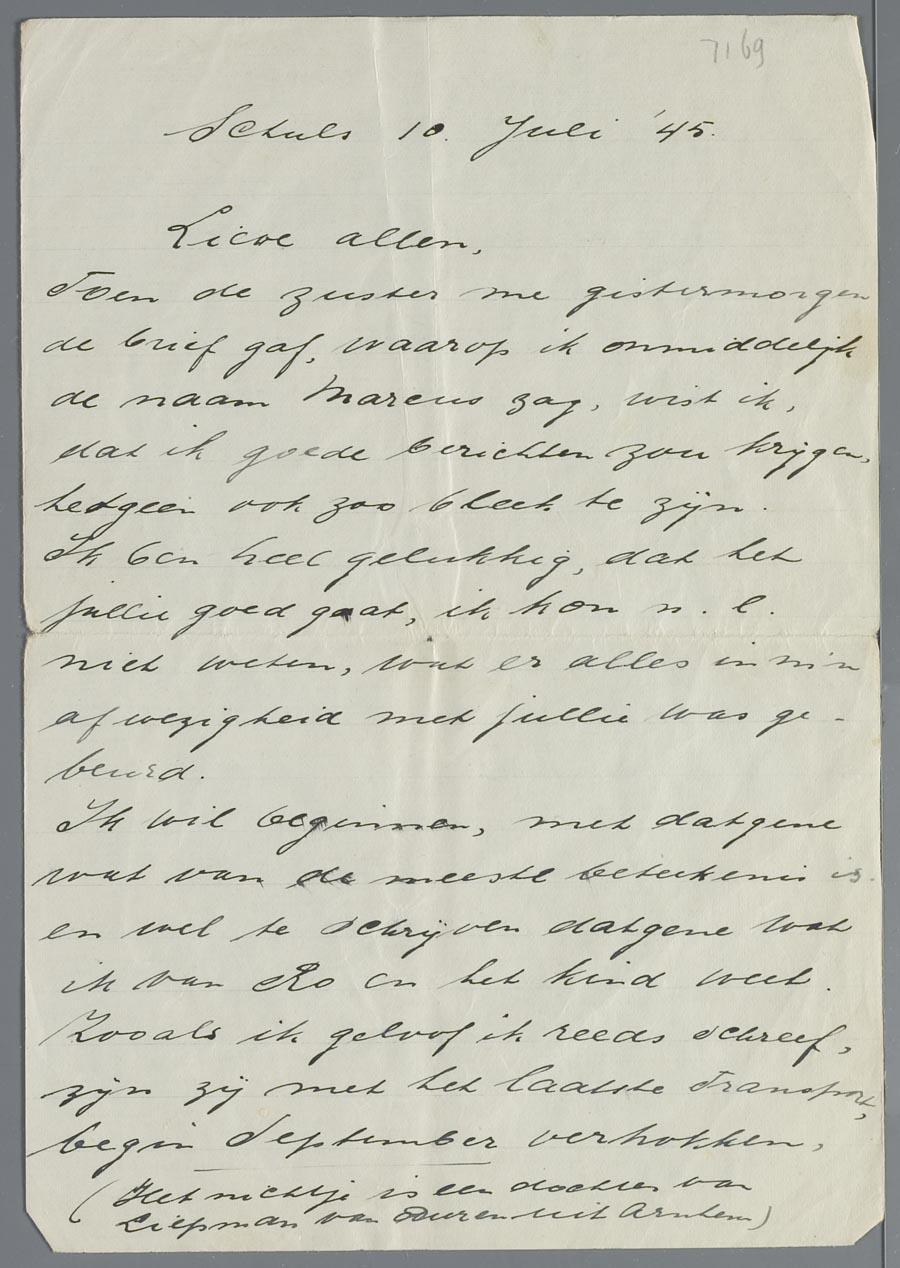 7169
Schuls 10. Juli '45.
Lieve allen,
Toen de zuster me gistermorgen
de brief gaf, waarop ik onmiddelijk
de naam Marcus zag, wist ik,
dat ik goede berichten zou krijgen,
hetgeen ook zoo bleek te zijn.
Ik ben heel gelukkig, dat het
jullie goed gaat, ik kon n. l.
niet weten, wat er alles in mijn
afwezigheid met jullie was ge-
beurd.
Ik wil beginnen, met datgene
wat van de meeste betekenis is.
en wel te schrijven datgene wat
ik van Ro en het kind weet.
Zooals ik geloof ik reeds schreef,
zijn zij met het laatste Transport,
begin September vertrokken,
(Het nichtje is een dochter van
Liepman van Buren uit Arnhem)